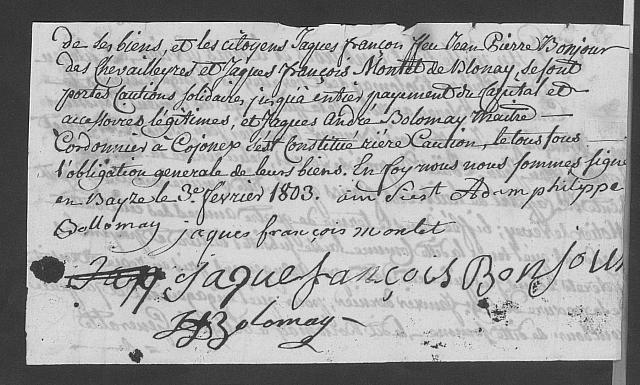 de ses biens, et les citoyens Jaques françois ffeu Jean Pierre Bonjour
des Chevailleyres et Jaques François Montet de Blonay, se sont
portés Cautions Solidaires, jusqu'à entier payement du Capital et
accessoires légitimes, et Jaques André Bolomay Maitre
Cordonnier à Cojonex s'est Constitué riére Caution, le tous sous
l'obligation generale de leurs biens. En foy nous nous sommes signé
en Bayze le 3e. fevrier 1803. ainsi est Adam philippe
Bollomay jaques françois montet
Jaque françois Bonjour
JA Bolomay